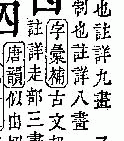 也註詳九畫
制也註詳八畫
字彙補古文
註詳走部三畫
唐韻似由